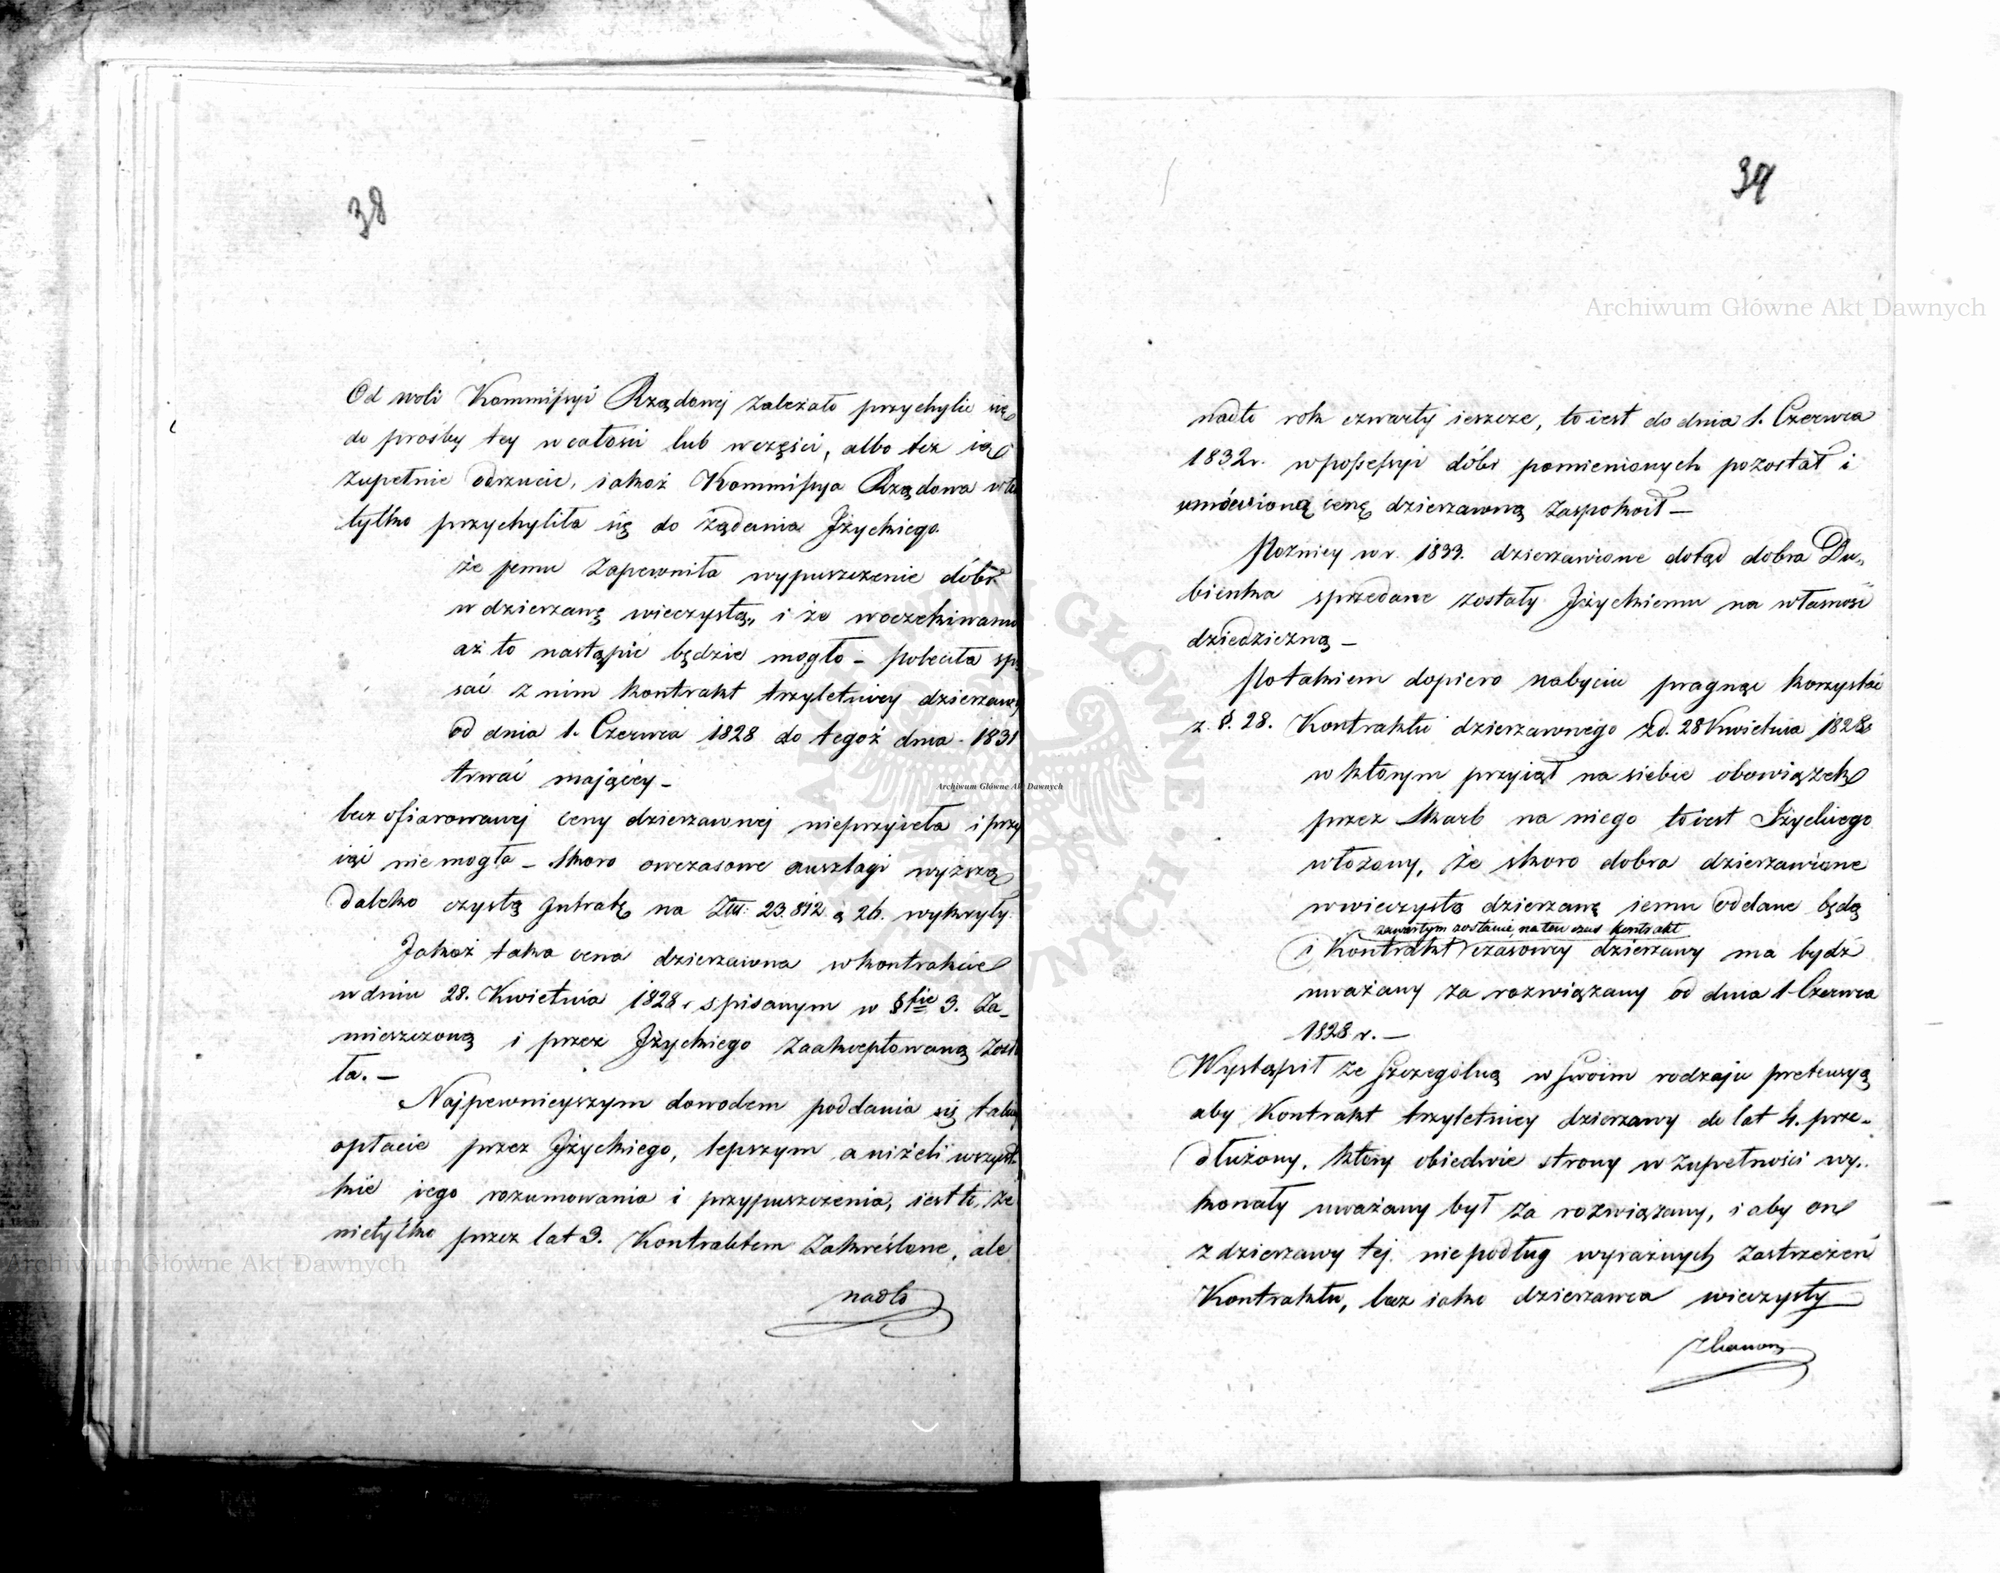 38
Od woli Kommissyi Rządowej zależało przychylić się
do prośby tey w całości lub wczęści, albo też ią
zupełnie odrzucić, iakoż Kommissya Rządowa
tylko przychyliła się do żądania Jżyckiego.
że jemu zapewniła wypuszczenie dóbr
w dzierzawę wieczystą, i że w oczekiwaniu
aż to nastąpić będzie mogło – poleciła spi
sać z nim kontrakt trzyletniey dzierzawy
od dnia 1. Czerwca 1828 do tegoż dnia 1831
trwać maiącey –
lecz ofiarowanej ceny dzierzawnej nieprzyięła i przy
iąć nie mogła – skoro owczasowe anszlagi wyższą
daleko czystą Jntratę na Złu: 23.812 g 26. wykryły.
Jakoż taka cena dzierzawna w kontrakcie
w dniu 28. Kwietnia 1828 r spisanym w §fie 3. Za-
mieszczoną i przez Jżyckiego zaakceptowaną zosta
ła. –
Najpewnieyszym dowodem poddania się
opłacie przez Jżyckiego, lepszym aniżeli wszyst
kie iego rozumowania i przypuszczenia, iest to, że
nietylko przez lat 3. Kontraktem zakreślone, ale
nadto
39
nadto rok czwarty ieszcze, to iest do dnia 1. Czerwca
1832 r. w possessyi dóbr pomienionych pozostał i
umówioną cenę dzierzawną zaspokoił –
Pozniey w r. 1833. dzierzawione dotąd dobra Du„
bienka sprzedane zostały Jżyckiemu na własność
dziedziczną –
Po takiem dopiero nabyciu pragnąc korzystać
z §. 28. Kontraktu dzierzawnego z d. 28 Kwietnia 1828
w którym przyiął na siebie obowiązek
przez Skarb na niego to iest Jżyckiego
włożony, że skoro dobra dzierzawione
w wieczystą dzierzawę iemu oddane będą
zawartym zostanie na ten czas kontrakt
i Kontrakt czasowey dzierzawy ma bydź
uważany za rozwiązany od dnia 1 Czerwca
1828 r. –
Wystąpił ze szczególną w swoim rodzaju pretensyą
aby Kontrakt trzyletniey dzierzawy do lat 4. prze-
dłużony, który obiedwie strony w zupełności wy„
konały uważany był za rozwiązany, i aby on
z dzierzawy tej. niepodług wyraźnych zastrzeżeń
Kontraktu, lecz iako dzierzawca wieczysty
Archiwum Główne Akt Dawnych
Archiwum Główne Akt Dawnych
Archiwum Główne Akt Dawnych